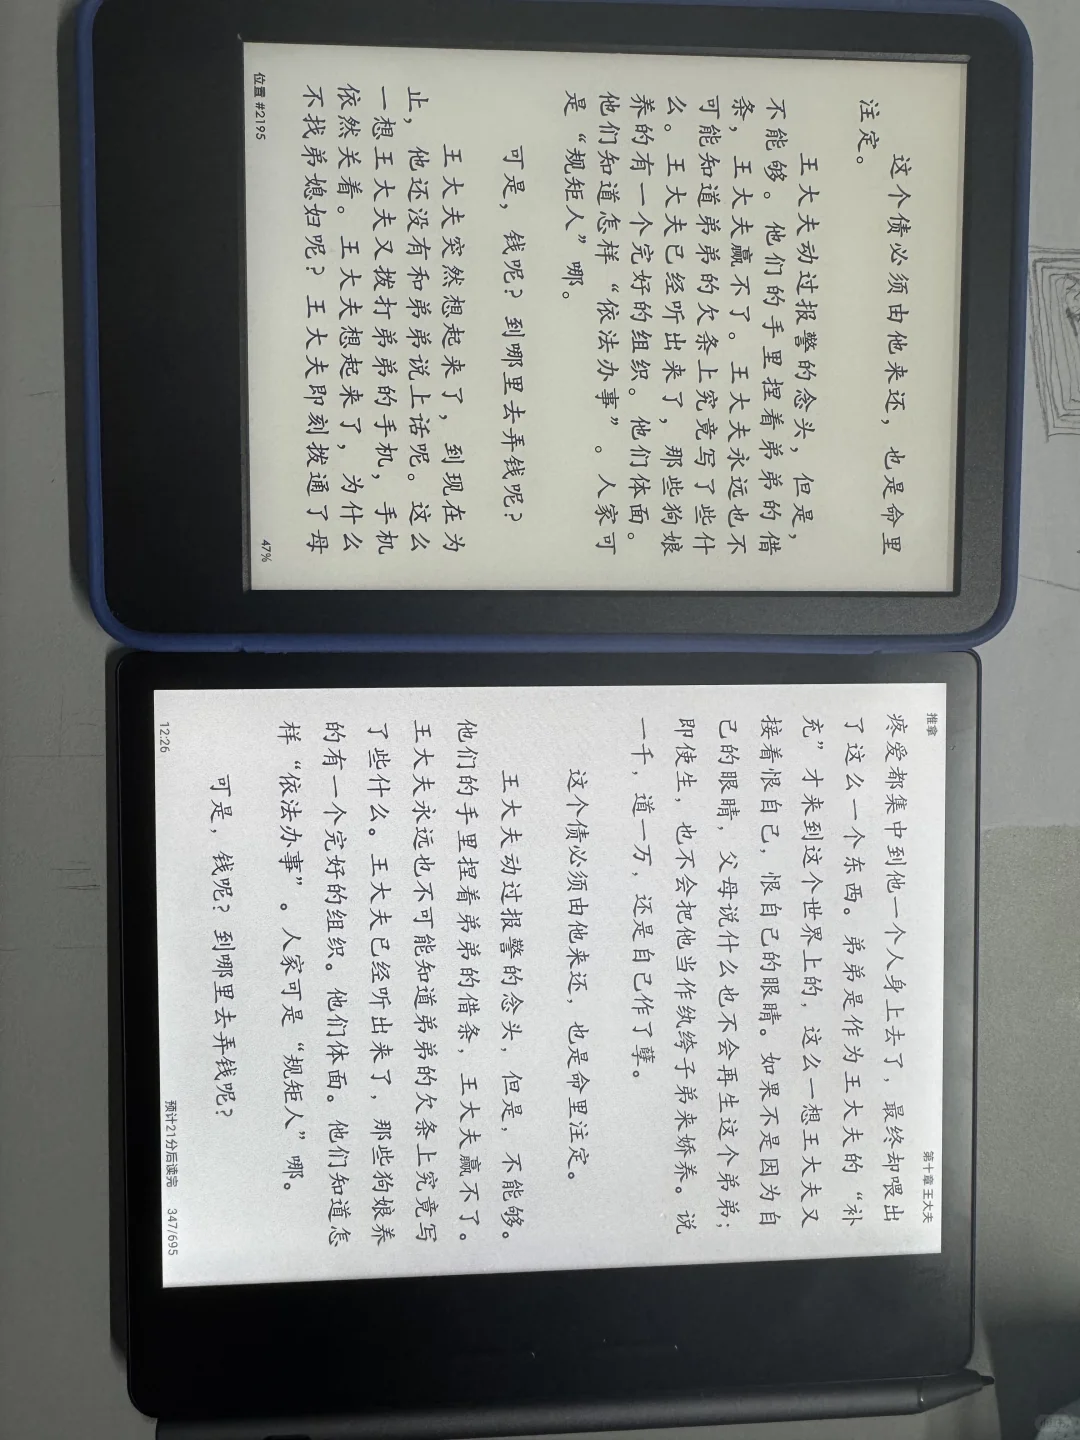 这个债必须由他来还，也是命里
注定。
王大夫动过报警的念头，但是，
不能够。他们的手里捏着弟弟的借
条，王大夫赢不了。王大夫永远也不
可能知道弟弟的欠条上究竟写了些什
么。王大夫已经听出来了，那些狗娘
养的有一个完好的组织。他们体面。
他们知道怎样“依法办事”。人家可
是“规矩人”哪。
可是，钱呢？到哪里去弄钱呢？
王大夫突然想起来了，到现在为
止，他还没有和弟弟说上话呢。这么
一想王大夫又拨打弟弟的手机，手机
依然关着。王大夫想起来了，为什么
不找弟媳妇呢？王大夫即刻拨通了母
位置 #2195
47%
推拿
第十章 王大夫
疼爱都集中到他一个人身上去了，最终却喂出
了这么一个东西。弟弟是作为王大夫的“补
充”才来到这个世界上的，这么一想王大夫又
接着恨自己，恨自己的眼睛。如果不是因为自
己的眼睛，父母说什么也不会再生这个弟弟；
即使生，也不会把他当作纨绔子弟来娇养。说
一千，道一万，还是自己作了孽。
这个债必须由他来还，也是命里注定。
王大夫动过报警的念头，但是，不能够。
他们的手里捏着弟弟的借条，王大夫赢不了。
王大夫永远也不可能知道弟弟的欠条上究竟写
了些什么。王大夫已经听出来了，那些狗娘养
的有一个完好的组织。他们体面。他们知道怎
样“依法办事”。人家可是“规矩人”哪。
可是，钱呢？到哪里去弄钱呢？
12:26
预计21分后读完
347/695